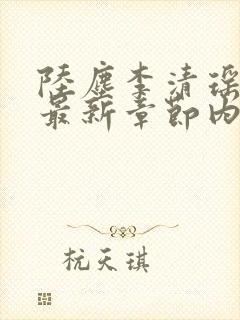 陆尘李清瑶
最新章节内
杭天琪